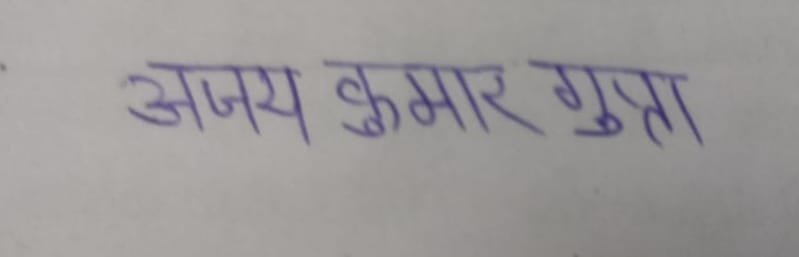 अजय कुमार गुप्ता